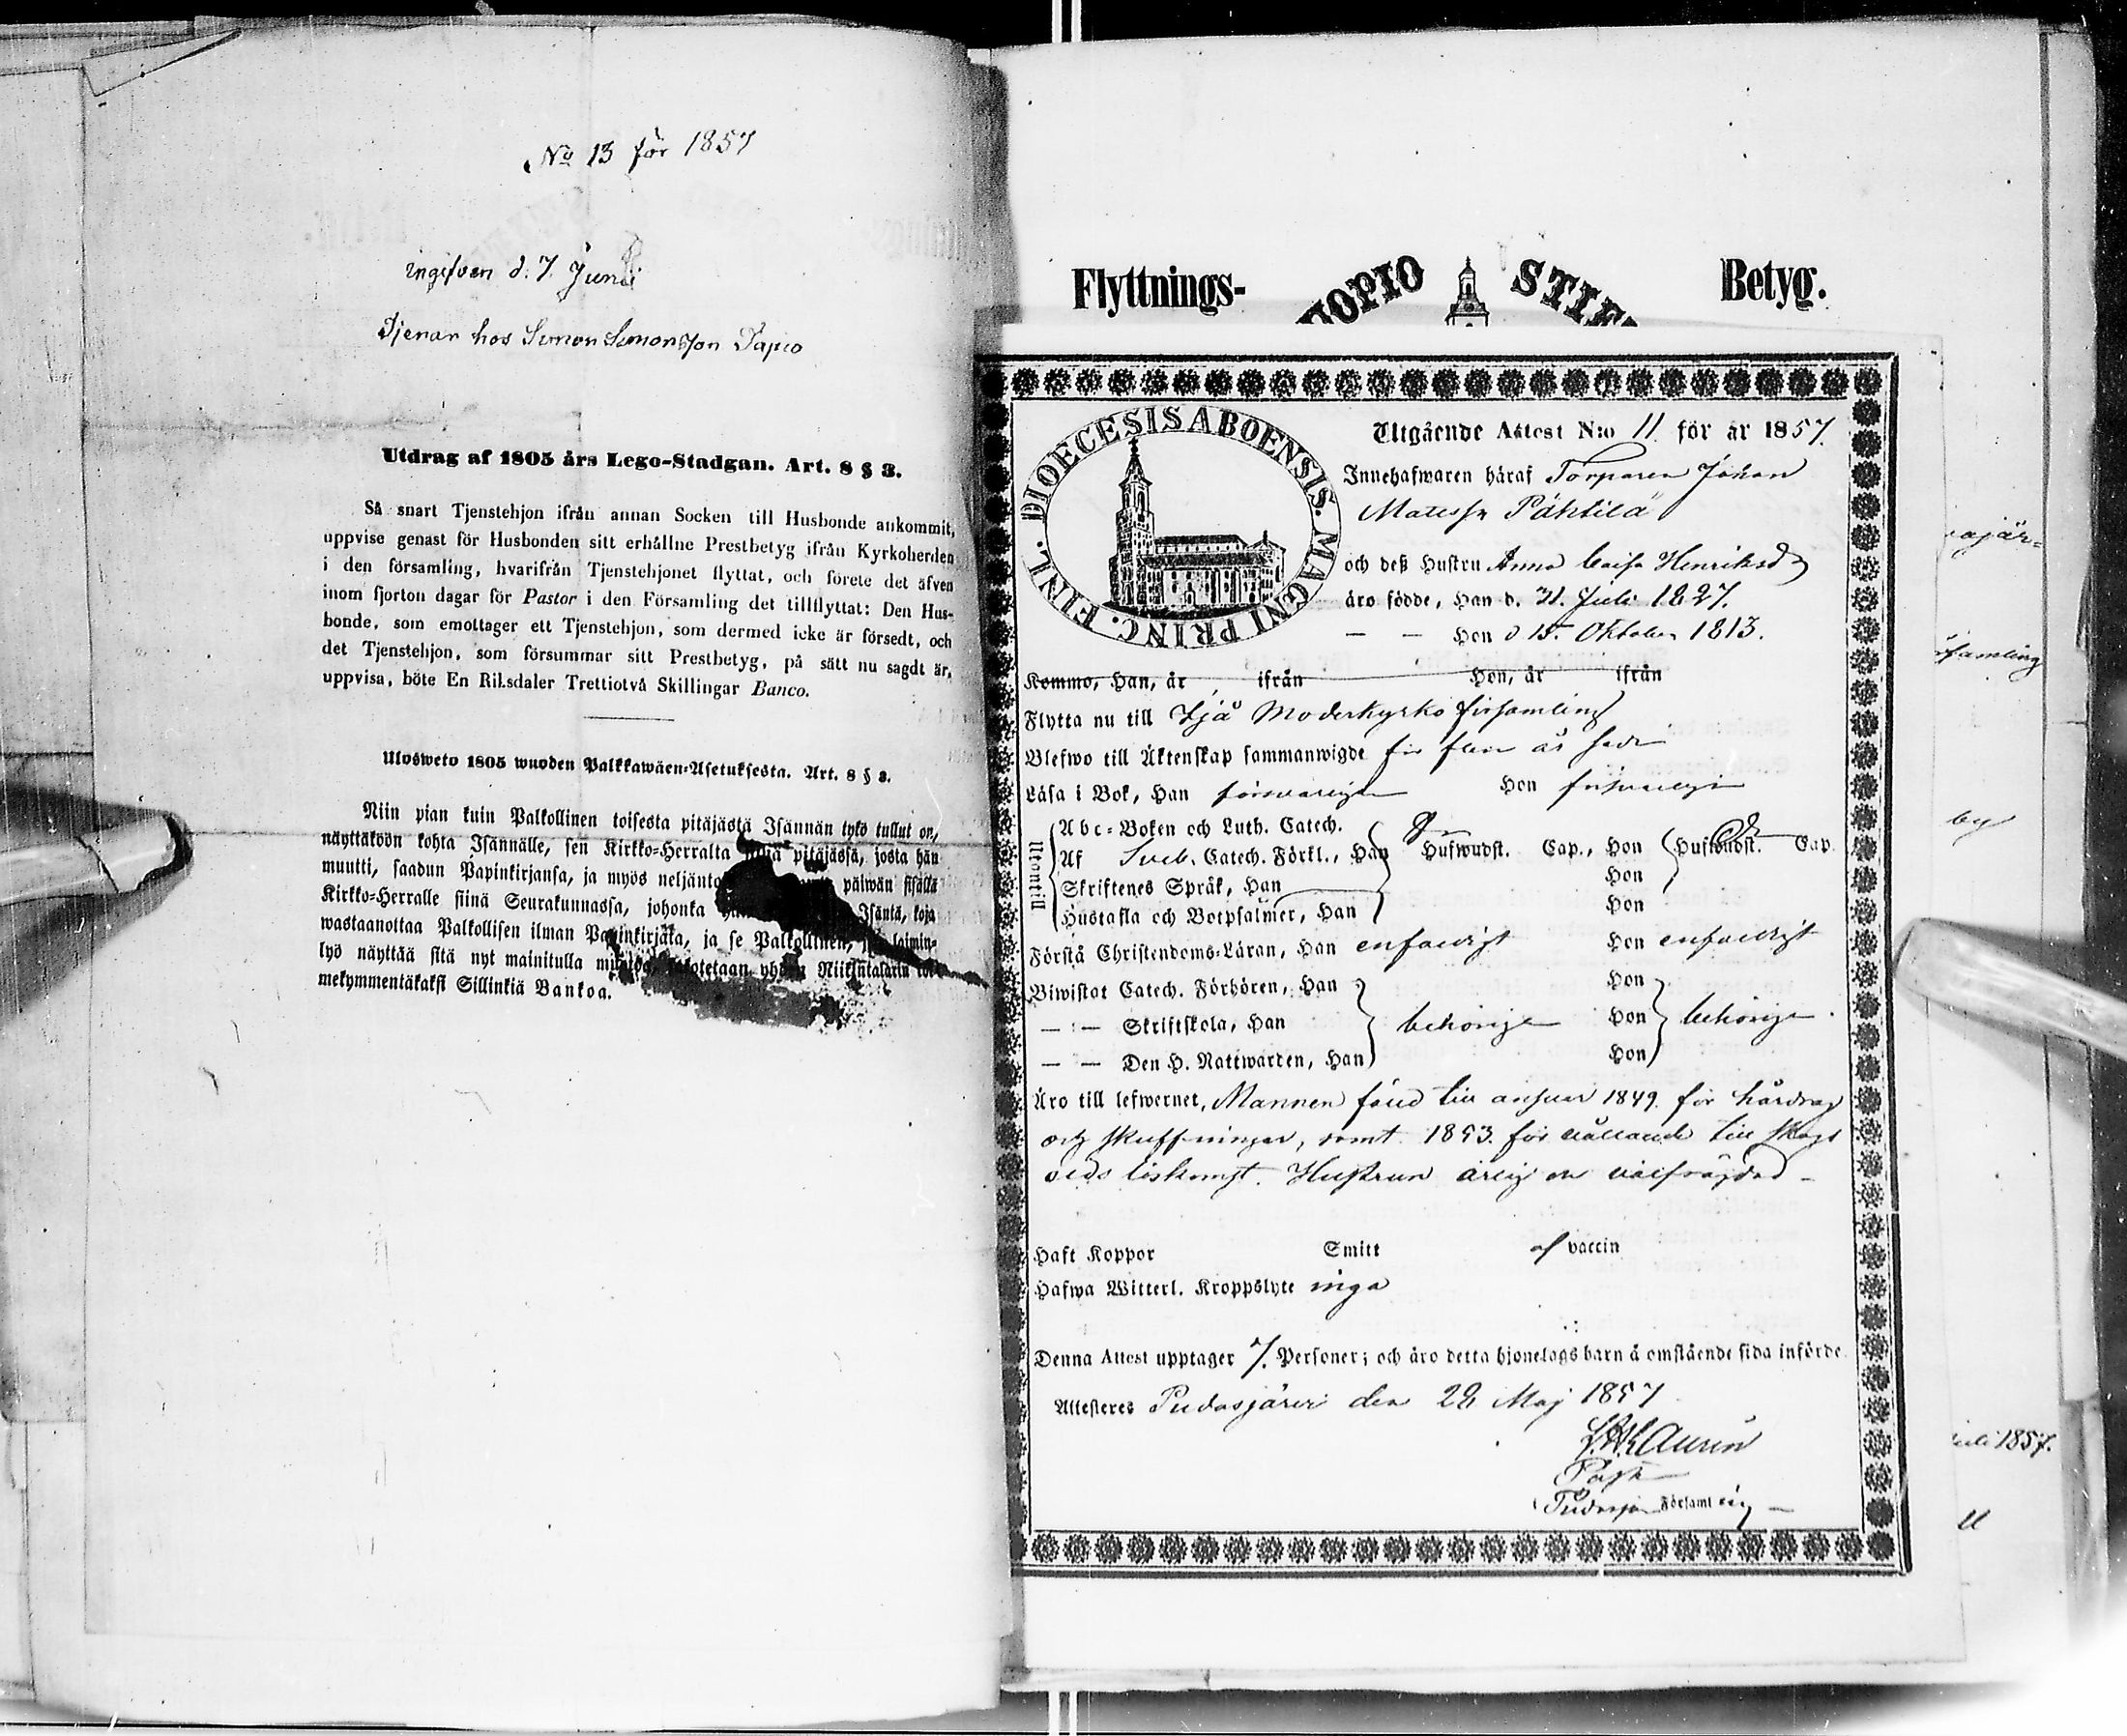 No 13 för 1857
ingifven d. 7 Junii
Tjenar hos Simon Simonsson Tapio
Utdrag af 1805 års Lego-Stadgan. Art. 8 § 3.
Så snart Tjenstehjon ifrån annan Socken till Husbonde ankommit,
uppvise genast för Husbonden sitt erhållne Prestbetyg ifrån Kyrkoherden
i den församling, hvarifrån Tjenstehjonet flyttat, och förete det äfven
inom fjorton dagar för Pastor i den Församling det tillflyttat: Den Hus-
bonde, som emottager ett Tjenstehjon, som dermed icke är försedt, och
det Tjenstehjon, som försummar sitt Prestbetyg, på sätt nu sagdt är,
uppvisa, böte En Riksdaler Trettiotvå Skillingar Banco.
Ulosweto 1805 wuoden Palkkawäen-Asetuksesta. Art. 8 § 3.
Niin pian kuin Palkollinen toisesta pitäjästä Isännän tykö tullut on,
näyttäköön kohta Isännälle, sen Kirkko-Herralta siinä pitäjässä, josta hän
muutti, saadun Papinkirjansa, ja myös neljänto päiwän sisällä
Kirkko-Herralle siinä Seurakunnassa, johonka Isäntä, koja
wastaanottaa Palkollisen ilman Papinkirjata, ja se Palkollinen, laimin-
lyö näyttää sitä nyt mainitulla sakotetaan yhden Riiksintalarin
mekymmentäkaksi Sillinkiä Bankoa.
Flyttnings- UOPIO STIF Betyg.
DIOECESIS ABOENSIS. MAGNI PRINC. FINL.
Utgående Attest N:o 11 för år 1857.
Innehafwaren häraf Torparen Johan
Matssn Pähtilä
och deß Hustru Anna Caisa Henriksdr
äro födde, Han d. 31. Juli 1827.
— — Hon d 15. Oktober 1813.
Kommo, Han, år ifrån Hon, år ifrån
Flytta nu till Ijå Moderkyrko församling
Blefwo till Äktenskap sammanwigde för flere år sedan
Läsa i Bok, Han försvarligen Hon försvarligen
Utantill
Abc-Boken och Luth. Catech.
Af Sveb. Catech. Förkl., Han Hufwudst. Cap., Hon Hufwudst. Cap.
Skriftenes Språk, Han Hon
Hustafla och Botpsalmer, Han Hon
Förstå Christendoms-Läran, Han enfaldigt Hon enfaldigt
Biwistat Catech. Förhören, Han Hon
— — Skriftskola, Han behörigen Hon behörigen
— — Den H. Nattwarden, Han Hon
Äro till lefwernet, Mannen fäld till ansvar 1849 för hårdrag
och skuffningar, samt 1853 för vållande till skogs
elds . Hustrun ärlig och välfrägdad –
Haft Koppor Smitt af vaccin
Hafwa Witterl. Kroppslyte inga
Denna Attest upptager 7. Personer; och äro detta hjonelags barn å omstående sida införde.
Attesteras Pudasjärvi den 28 Maj 1857
Past.
Församling
ajär-
församling
by
uli 1857.